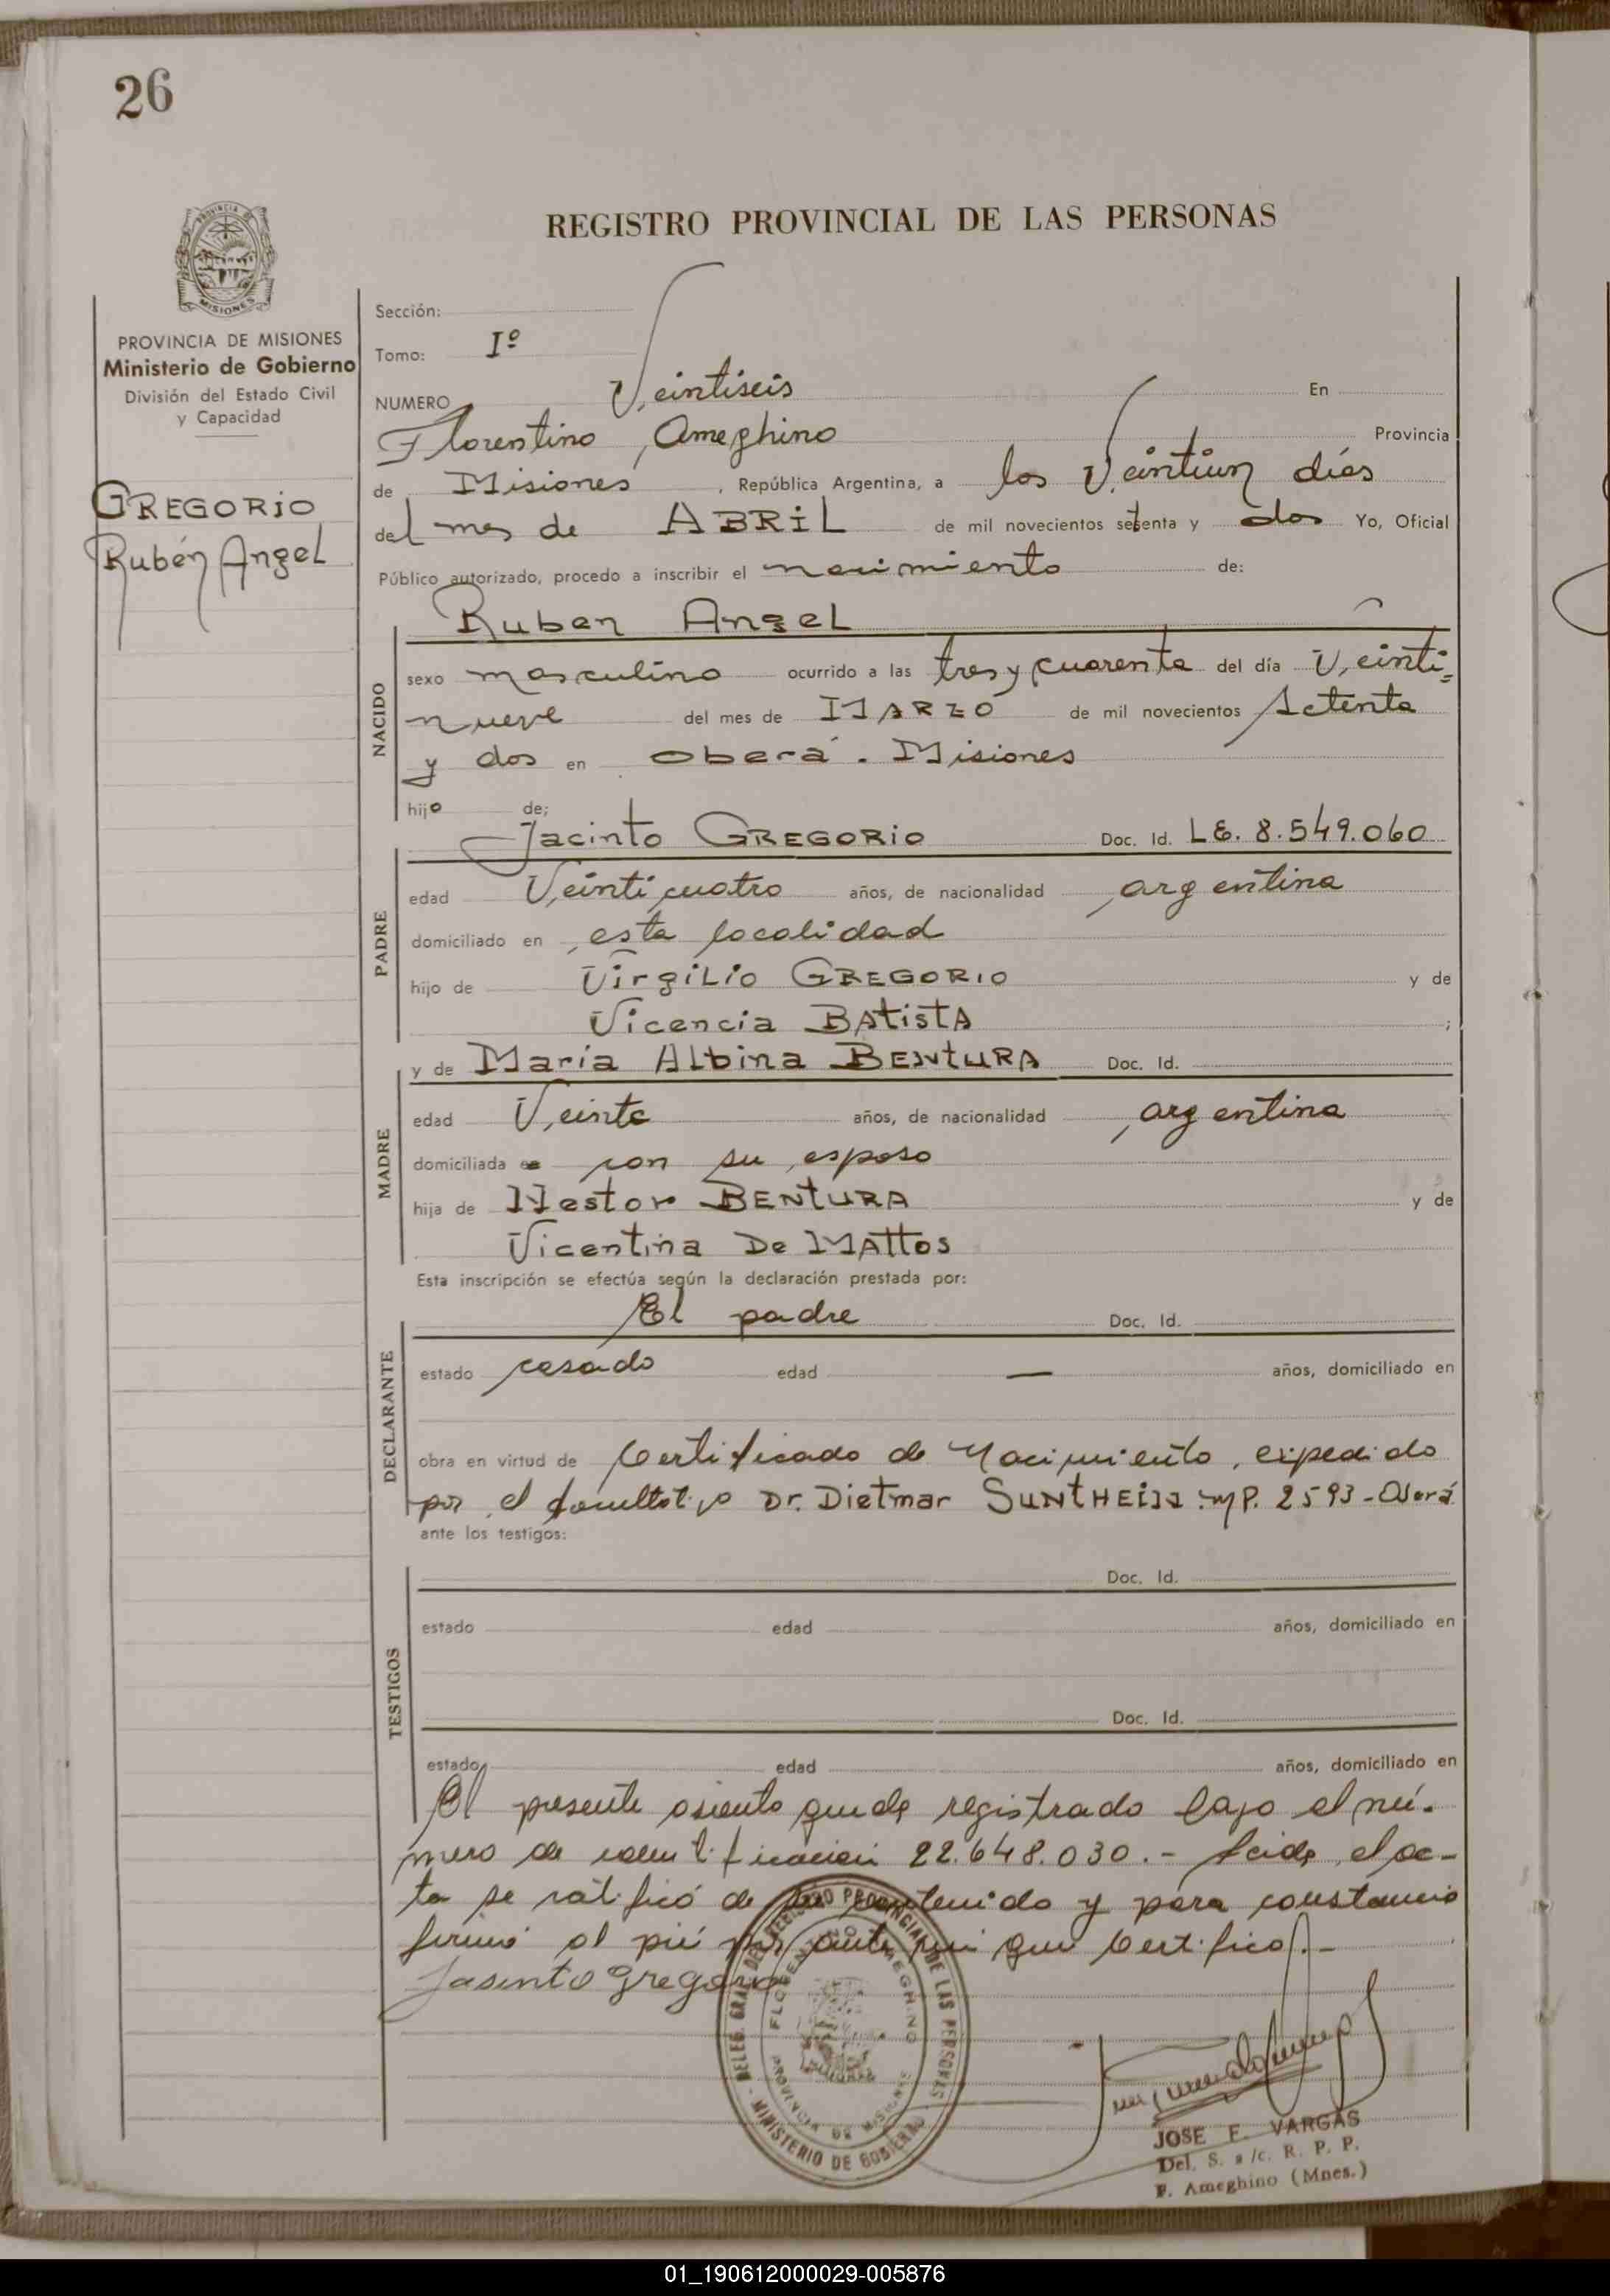 26
PROVINCIA DE
MISIONES
REGISTRO PROVINCIAL DE LAS PERSONAS
PROVINCIA DE MISIONES
Ministerio de Gobierno
División del Estado Civil
y Capacidad
GREGORIO
Rubén Angel
Sección:
Tomo: Iº
NUMERO Veintiseis En
Florentino Ameghino Provincia
de Misiones, República Argentina, a los Veintiun días
del mes de ABRIL de mil novecientos setenta y dos Yo, Oficial
Público autorizado, procedo a inscribir el nacimiento de:
Ruben Angel
NACIDO
sexo masculino ocurrido a las tres y cuarenta del día Veinti=
nueve del mes de MARZO de mil novecientos setenta
y dos en Oberá. Misiones
hijo de;
Jacinto GREGORIO Doc. Id. LE. 8.549.060
PADRE
edad Veinticuatro años, de nacionalidad argentina
domiciliado en esta localidad
hijo de Virgilio GREGORIO y de
Vicencia BAtistA ;
y de María Albina BENtURA Doc. Id.
MADRE
edad Veinte años, de nacionalidad argentina
domiciliada con su esposo
hija de Nestor BENtURA y de
Vicentina De MAttos
Esta inscripción se efectúa según la declaración prestada por:
El padre Doc. Id.
DECLARANTE
estado casado edad — años, domiciliado en
obra en virtud de Certificado de Nacimiento, expedido
por el facultativo Dr. Dietmar MP. 2593-Oberá
ante los testigos:
Doc. Id.
TESTIGOS
estado edad años, domiciliado en
Doc. Id.
estado edad años, domiciliado en
El presente asiento queda registrado bajo el nú-
mero de identificación 22.648.030.- Leida el ac-
ta se ratificó de su contenido y para constancia
firmó al pié por ante mi que Certifico.-
Jasinto Gregorio
DELEG. GRAL. DEL REGISTRO PROVINCIAL DE LAS PERSONAS
FLORENTINO AMEGHINO
PROVINCIA DE MISIONES
MINISTERIO DE GOBIERNO
JOSE F. VARGAS
Del. S. a/c. R. P. P.
F. Ameghino (Mnes.)
01_190612000029-005876